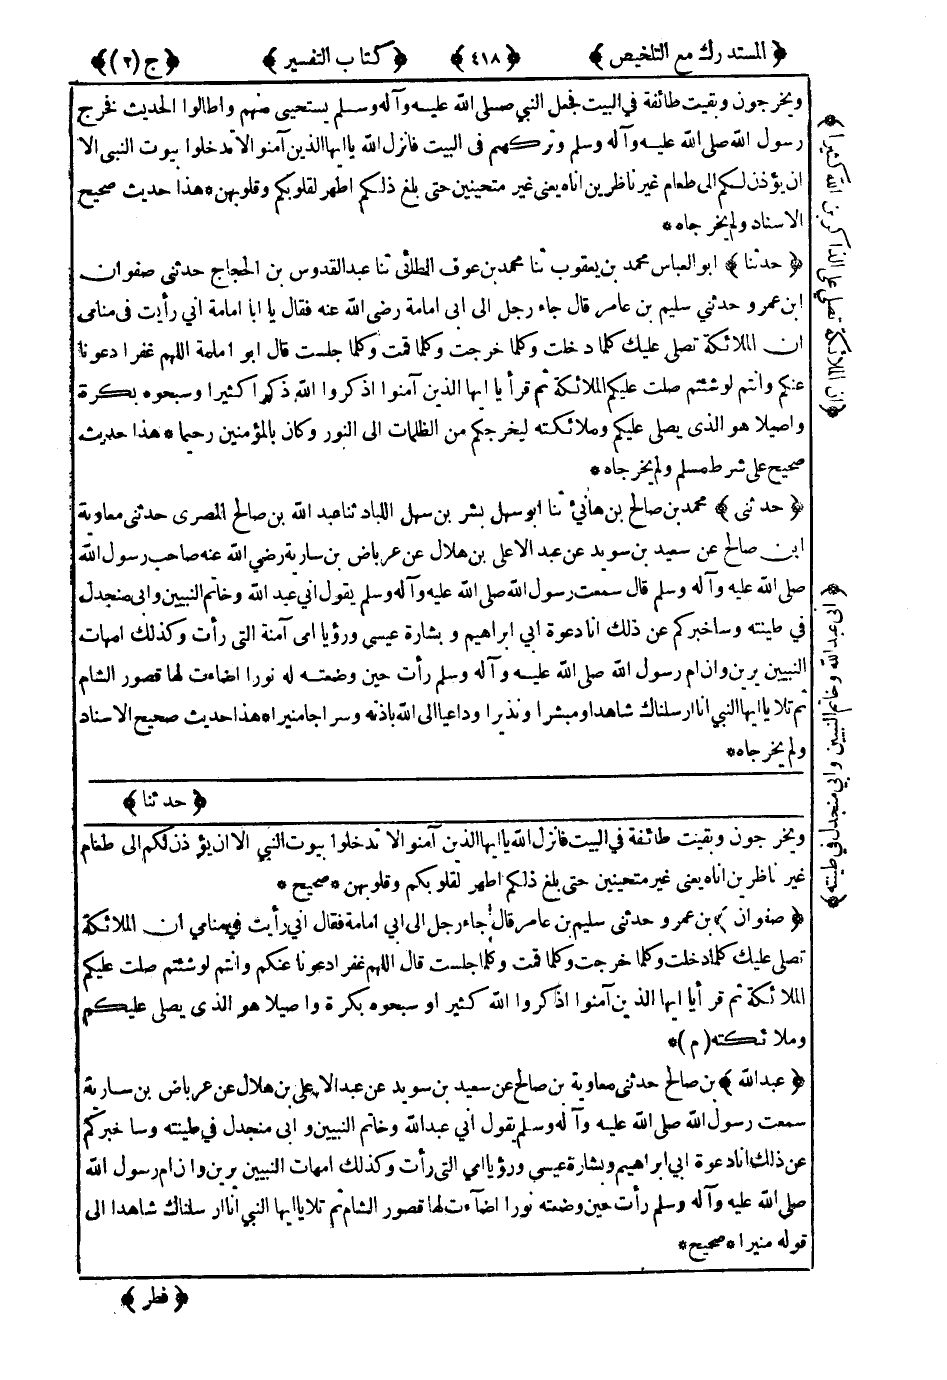 ﴿ المستدرك مع التلخيص ﴾ ﴿ ٤١٨ ﴾ ﴿ كتاب التفسير ﴾ ﴿ ج (٢) ﴾
ويخرجون وبقيت طائفة في البيت فجعل النبي صلى الله عليه وآله وسلم يستحيي منهم واطالوا الحديث فخرج
رسول الله صلى الله عليه وآله وسلم وتركهم فى البيت فانزل الله يا ايها الذين آمنوا لا تدخلوا بيوت النبى الا
ان يؤذن لكم الى طعام غير ناظرين اناه يعنى غير متحينين حتى بلغ ذلكم اطهر لقلوبكم وقلوبهن * هذا حديث صحيح
الاسناد ولم يخرجاه *
﴿ حدثنا ﴾ ابو العباس محمد بن يعقوب ثنا محمد بن عوف الطائى ثنا عبد القدوس بن الحجاج حدثنى صفوان
ابن عمرو حدثني سليم بن عامر قال جاء رجل الى ابى امامة رضى الله عنه فقال يا ابا امامة اني رأيت فى منامى
ان الملائكة تصلى عليك كلما دخلت وكلما خرجت وكلما قمت وكلما جلست قال ابو امامة اللهم غفرا دعونا
عنكم وانتم لو شئتم صلت عليكم الملائكة ثم قرأ يا ايها الذين آمنوا اذكروا الله ذكرا كثيرا وسبحوه بكرة
واصيلا هو الذى يصلى عليكم وملائكته ليخرجكم من الظلمات الى النور وكان بالمؤمنين رحيما * هذا حديث
صحيح على شرط مسلم ولم يخرجاه *
﴿ حدثنى ﴾ محمد بن صالح بن هانئ ثنا ابو سهل بشر بن سهل اللباد ثنا عبد الله بن صالح المصرى حدثنى معاوية
ابن صالح عن سعيد بن سويد عن عبد الاعلى بن هلال عن عرباض بن سارية رضي الله عنه صاحب رسول الله
صلى الله عليه وآله وسلم قال سمعت رسول الله صلى الله عليه وآله وسلم يقول اني عبد الله وخاتم النبيين وابى منجدل
في طينته وساخبركم عن ذلك انا دعوة ابي ابراهيم وبشارة عيسي ورؤيا امى آمنة التى رأت وكذلك امهات
النبيين يرين وان ام رسول الله صلى الله عليه وآله وسلم رأت حين وضعته له نورا اضاءت لها قصور الشام
ثم تلا يا ايها النبي انا ارسلناك شاهدا ومبشرا ونذيرا وداعيا الى الله باذنه وسراجا منيرا * هذا حديث صحيح الاسناد
ولم يخرجاه *
﴿ حدثنا ﴾
ويخرجون وبقيت طائفة في البيت فانزل الله يا ايها الذين آمنوا لا تدخلوا بيوت النبي الا ان يؤذن لكم الى طعام
غير ناظرين اناه يعنى غير متحينين حتى بلغ ذلكم اطهر لقلوبكم وقلوبهن * صحيح *
﴿ صفوان ﴾ بن عمرو حدثنى سليم بن عامر قال جاء رجل الى ابي امامة فقال اني رأيت في منامي ان الملائكة
تصلى عليك كلما دخلت وكلما خرجت وكلما قمت وكلما جلست قال اللهم غفرا دعونا عنكم وانتم لو شئتم صلت عليكم
الملائكة ثم قرأ يا ايها الذين آمنوا اذكروا الله كثيرا وسبحوه بكرة واصيلا هو الذى يصلى عليكم
وملائكته (م) *
﴿ عبد الله ﴾ بن صالح حدثنى معاوية بن صالح عن سعيد بن سويد عن عبد الاعلى بن هلال عن عرباض بن سارية
سمعت رسول الله صلى الله عليه وآله وسلم يقول اني عبد الله وخاتم النبيين وابى منجدل في طينته وساخبركم
عن ذلك انا دعوة ابي ابراهيم وبشارة عيسي ورؤيا امي التى رأت وكذلك امهات النبيين يرين وان ام رسول الله
صلى الله عليه وآله وسلم رأت حين وضعته نورا اضآءت لها قصور الشام ثم تلا يا ايها النبي انا ارسلناك شاهدا الى
قوله منيرا * صحيح *
﴿ فطر ﴾
﴿ ان الملائكة تصلي على الذاكرين الله كثيرا ﴾
﴿ اني عبد الله وخاتم النبيين وابي منجدل في طينته ﴾